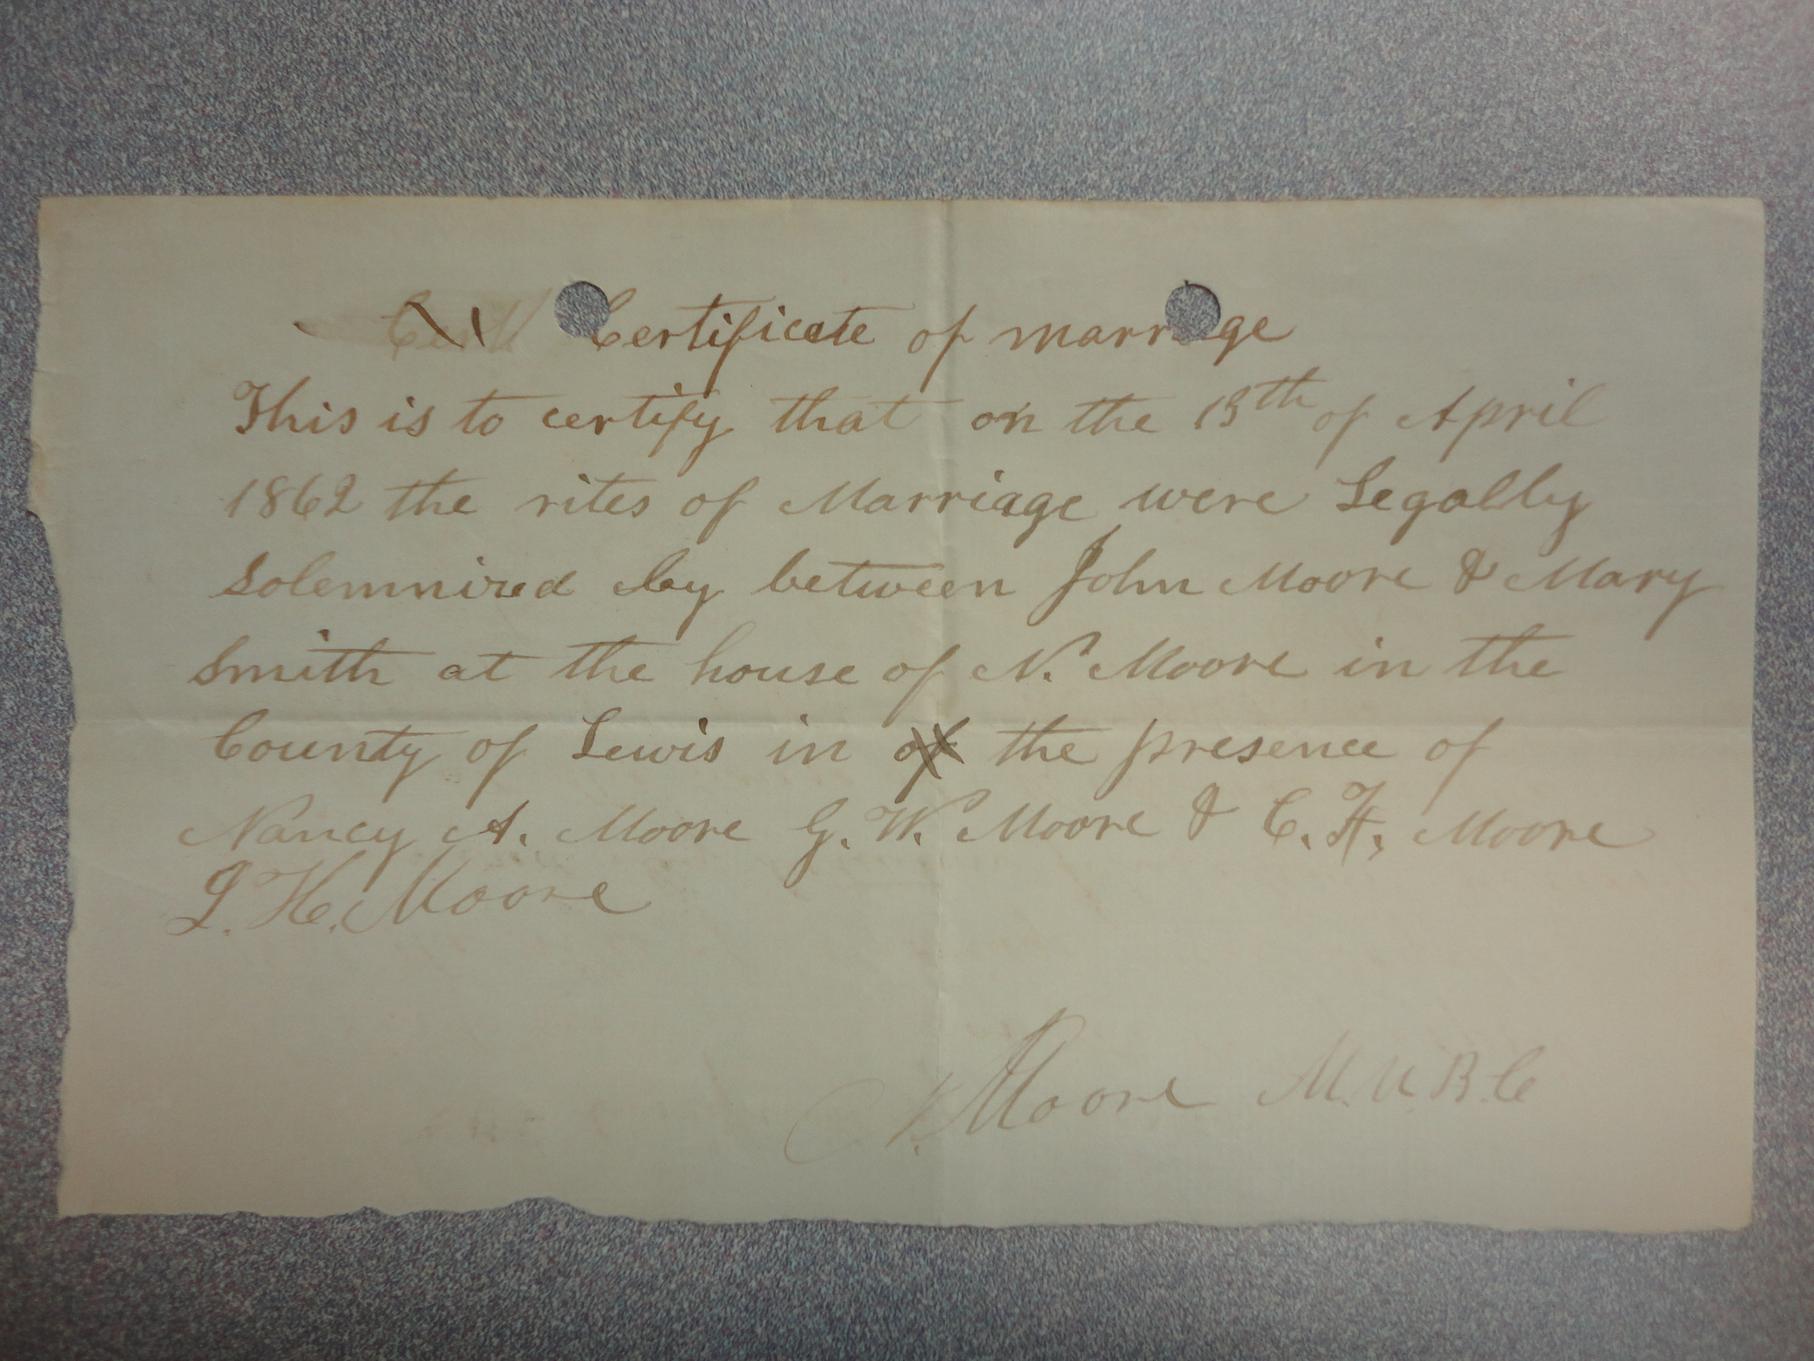 Certificate of marrage
This is to certify that on the 13th of April
1862 the rites of Marriage were Legally
Solemnized by between John Moore & Mary
Smith at the house of N. Moore in the
County of Lewis in of the presence of
Nancy A. Moore G. W. Moore & C. F. Moore
L. H. Moore
N. Moore M. U. B. C